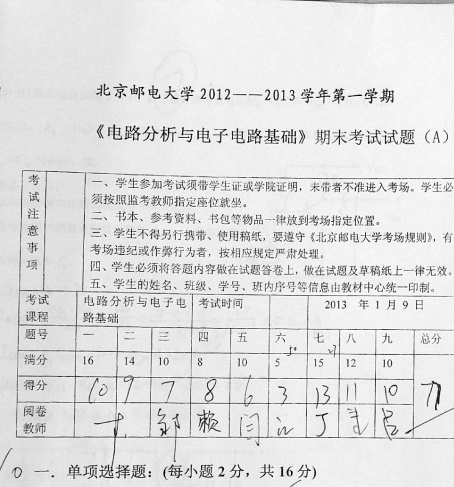 北京邮电大学 2012——2013 学年第一学期
《电路分析与电子电路基础》期末考试试题（A）
考试注意事项
一、学生参加考试须带学生证或学院证明，未带者不准进入考场。学生必
须按照监考教师指定座位就坐。
二、书本、参考资料、书包等物品一律放到考场指定位置。
三、学生不得另行携带、使用稿纸，要遵守《北京邮电大学考场规则》，有
考场违纪或作弊行为者，按相应规定严肃处理。
四、学生必须将答题内容做在试题答卷上，做在试题及草稿纸上一律无效。
五、学生的姓名、班级、学号、班内序号等信息由教材中心统一印制。
考试课程 电路分析与电子电路基础 考试时间 2013 年 1 月 9 日
题号 一 二 三 四 五 六 七 八 九 总分
满分 16 14 10 8 10 5 15 12 10
得分 10 9 7 8 6 3 13 11 10 77
阅卷教师 邹 赖 闫 江 丁 吕
10 一．单项选择题：(每小题 2 分，共 16 分)